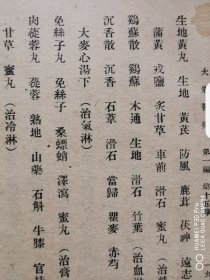 大
第一編
生地黃丸 生地 黃芪 防風 鹿茸 茯神 遠志
蒲黃 戎鹽 炙甘草 車前 滑石 蜜丸
雞蘇散 雞蘇 木通 生地 滑石 竹葉 （治血
沉香散 沉香 石葦 滑石 當歸 瞿麥 赤芍
大麥心湯下 （治氣淋）
菟絲子丸 菟絲子 桑螵蛸 澤瀉 蜜丸 （治膏
肉蓯蓉丸 蓯蓉 熟地 山藥 石斛 牛膝 官桂
甘草 蜜丸 （治冷淋）
HUAWEI P30 PRO
LEICA QUAD CAMERA